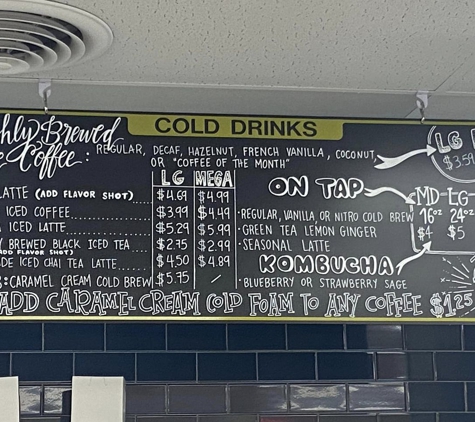 COLD DRINKS
hly Brewed
Coffee:
REGULAR, DECAF, HAZELNUT, FRENCH VANILLA, COCONUT,
OR "COFFEE OF THE MONTH"
LG
$3.50
LG MEGA
LATTE (ADD FLAVOR SHOT)..... $4.69 $4.99
ICED COFFEE..... $3.99 $4.49
ICED LATTE..... $5.29 $5.99
BREWED BLACK ICED TEA.... $2.75 $2.99
ADD FLAVOR SHOT)
DE ICED CHAI TEA LATTE..... $4.50 $4.89
:CARAMEL CREAM COLD BREW $5.75 /
ON TAP
MD-LG
16oz 24oz
$4 $5
·REGULAR, VANILLA, OR NITRO COLD BREW
·GREEN TEA LEMON GINGER
·SEASONAL LATTE
KOMBUCHA
·BLUEBERRY OR STRAWBERRY SAGE
ADD CARAMEL CREAM COLD FOAM TO ANY COFFEE $1.25